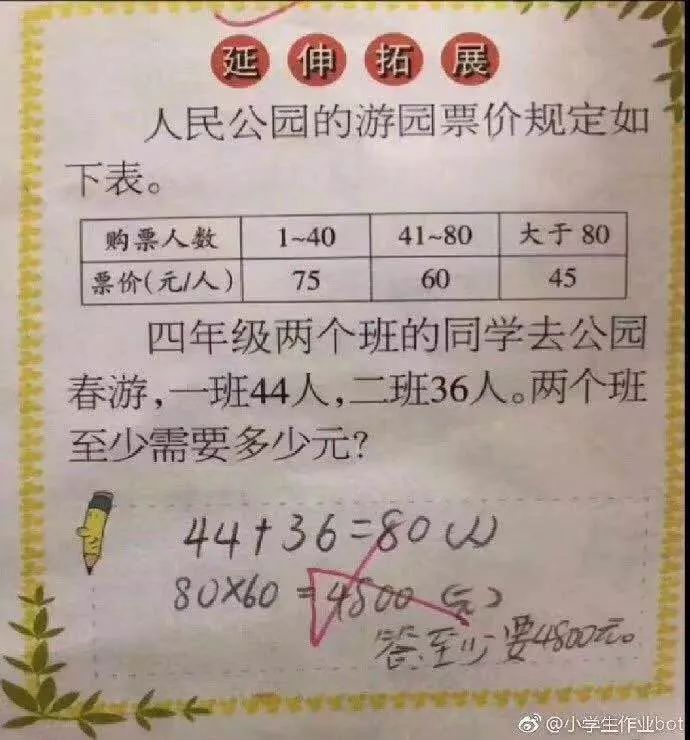 延伸拓展
人民公园的游园票价规定如
下表。
购票人数 1~40 41~80 大于80
票价(元/人) 75 60 45
四年级两个班的同学去公园
春游,一班44人,二班36人。两个班
至少需要多少元?
44+36=80(人)
80×60=4800(元)
答:至少要4800元。
@小学生作业bot